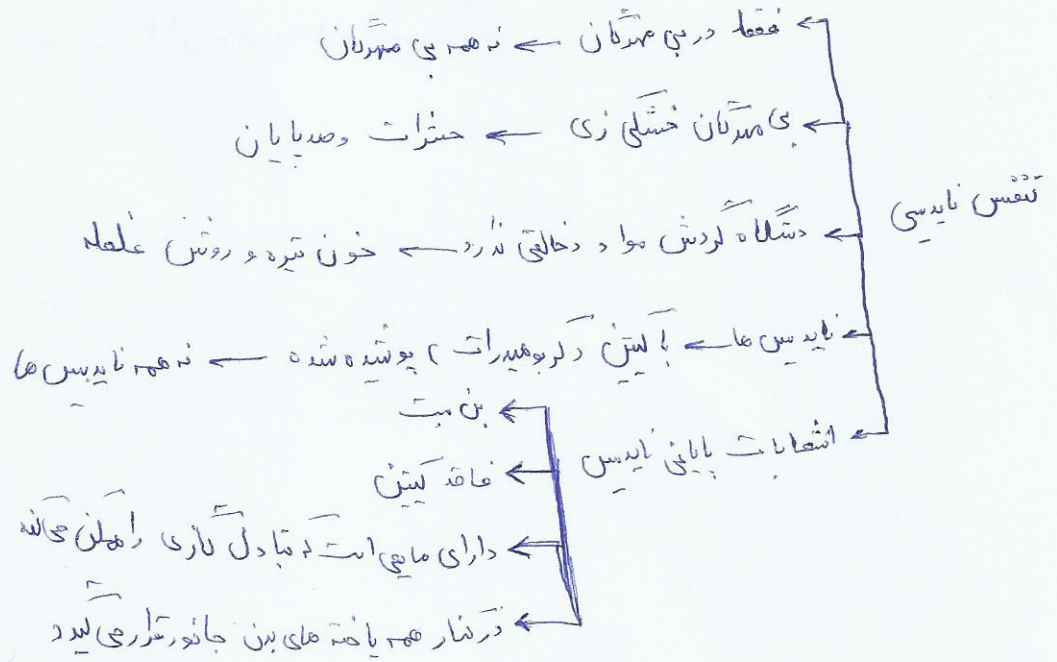 تنفس نایدیسی
فقط در بی مهرگان ← نه همه بی مهرگان
بی مهرگان خشکی زی ← حشرات و صدپایان
دستگاه گردش مواد دخالتی ندارد ← خون تیره و روشن غلطه
نایدیس ها ← با کیتین (کربوهیدرات) پوشیده شده ← نه همه نایدیس ها
انشعابات پایانی نایدیس
بن بست
فاقد کیتین
دارای مایعی است که تبادل گازی را ممکن می کند
در کنار همه یاخته های بدن جانور قرار می گیرد